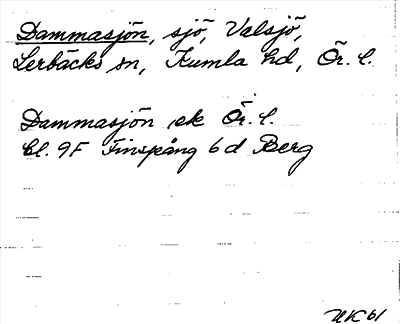 Dammasjön, sjö, Valsjö,
Lerbäcks sn, Kumla hd, Ör. l.
Dammasjön ek Ör. l.
bl. 9F Finspång 6d Berg
NK61